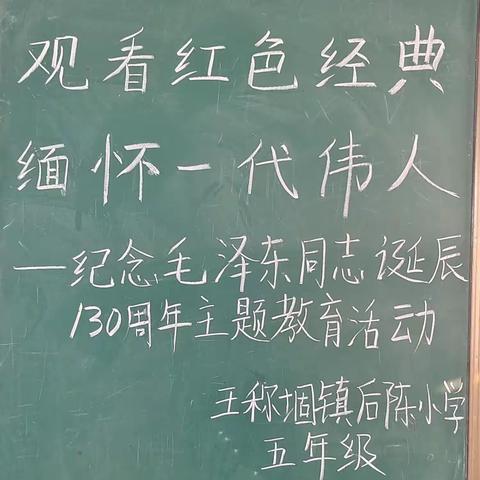 观看红色经典
缅怀一代伟人
—纪念毛泽东同志诞辰
130周年主题教育活动
王称堌镇后陈小学
五年级